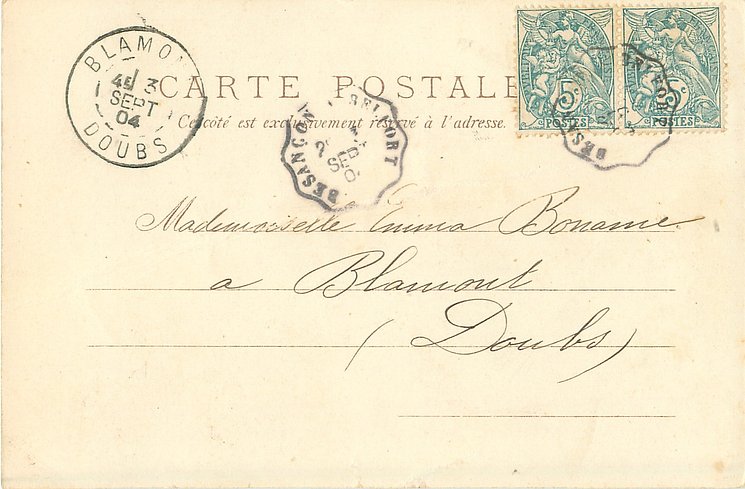 BLAMO
3
SEPT
04
DOUBS
CARTE POSTALE
Ce côté est exclusivement réservé à l'adresse.
BESANÇON
BELFORT
2
SEP
BESANÇON
5c
POSTES
5c
POSTES
Mademoiselle Emma Boname
a Blamont
(Doubs)